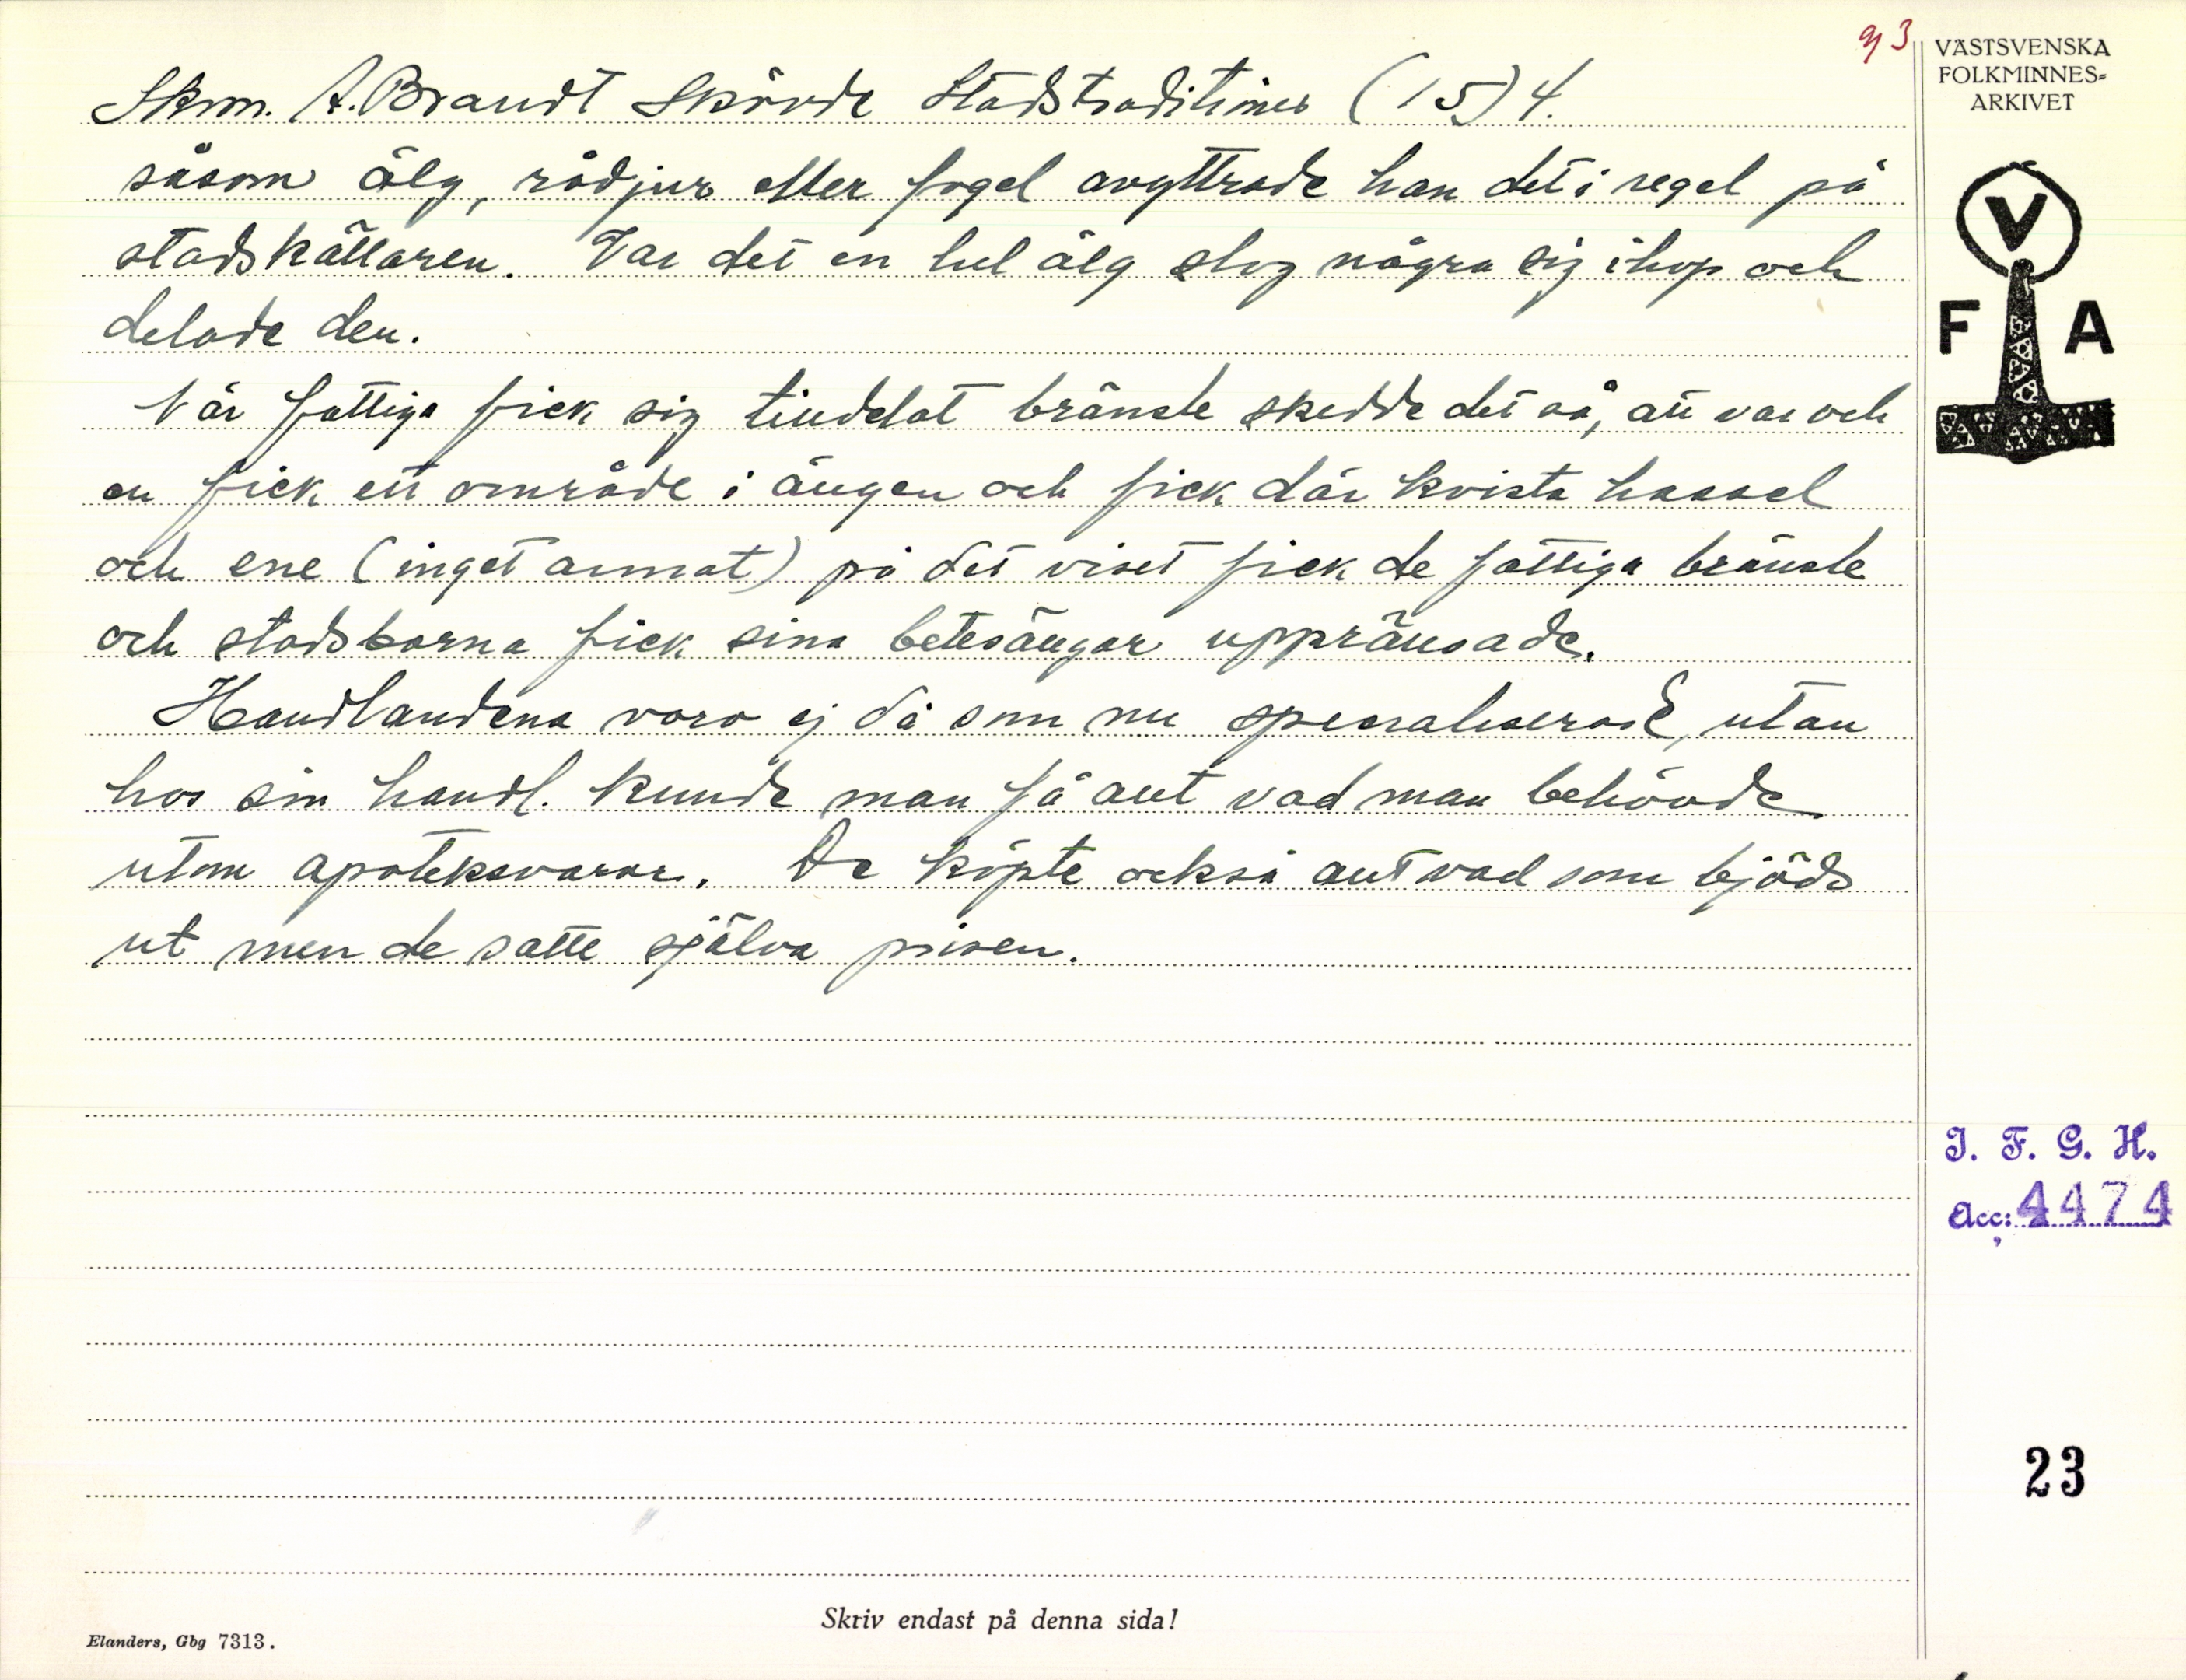 93
VÄSTSVENSKA
FOLKMINNES-
ARKIVET
V
F A
Skm. A. Brandt Skövde Stadstraditioner (15) 4.
såsom älg, rådjur eller fogel avyttrade han det i regel på
stadskällaren. Var det en hel älg slog några sig ihop och
delade den.
När fattiga fick sig tilldelat bränsle skedde det så, att var och
en fick ett område i ängen och fick där kvista hassel
och ene (inget annat) på det viset fick de fattiga bränsle
och stadsborna fick sina betesängar uppränsade.
Handlandena voro ej då som nu specialiserade, utan
hos sin handl. kunde man få allt vad man behövde
utom apoteksvaror. De köpte också allt vad som bjöds
ut men de satte själva prisen.
I. F. G. H.
Acc: 4474
23
Skriv endast på denna sida!
Elanders, Gbg 7313.